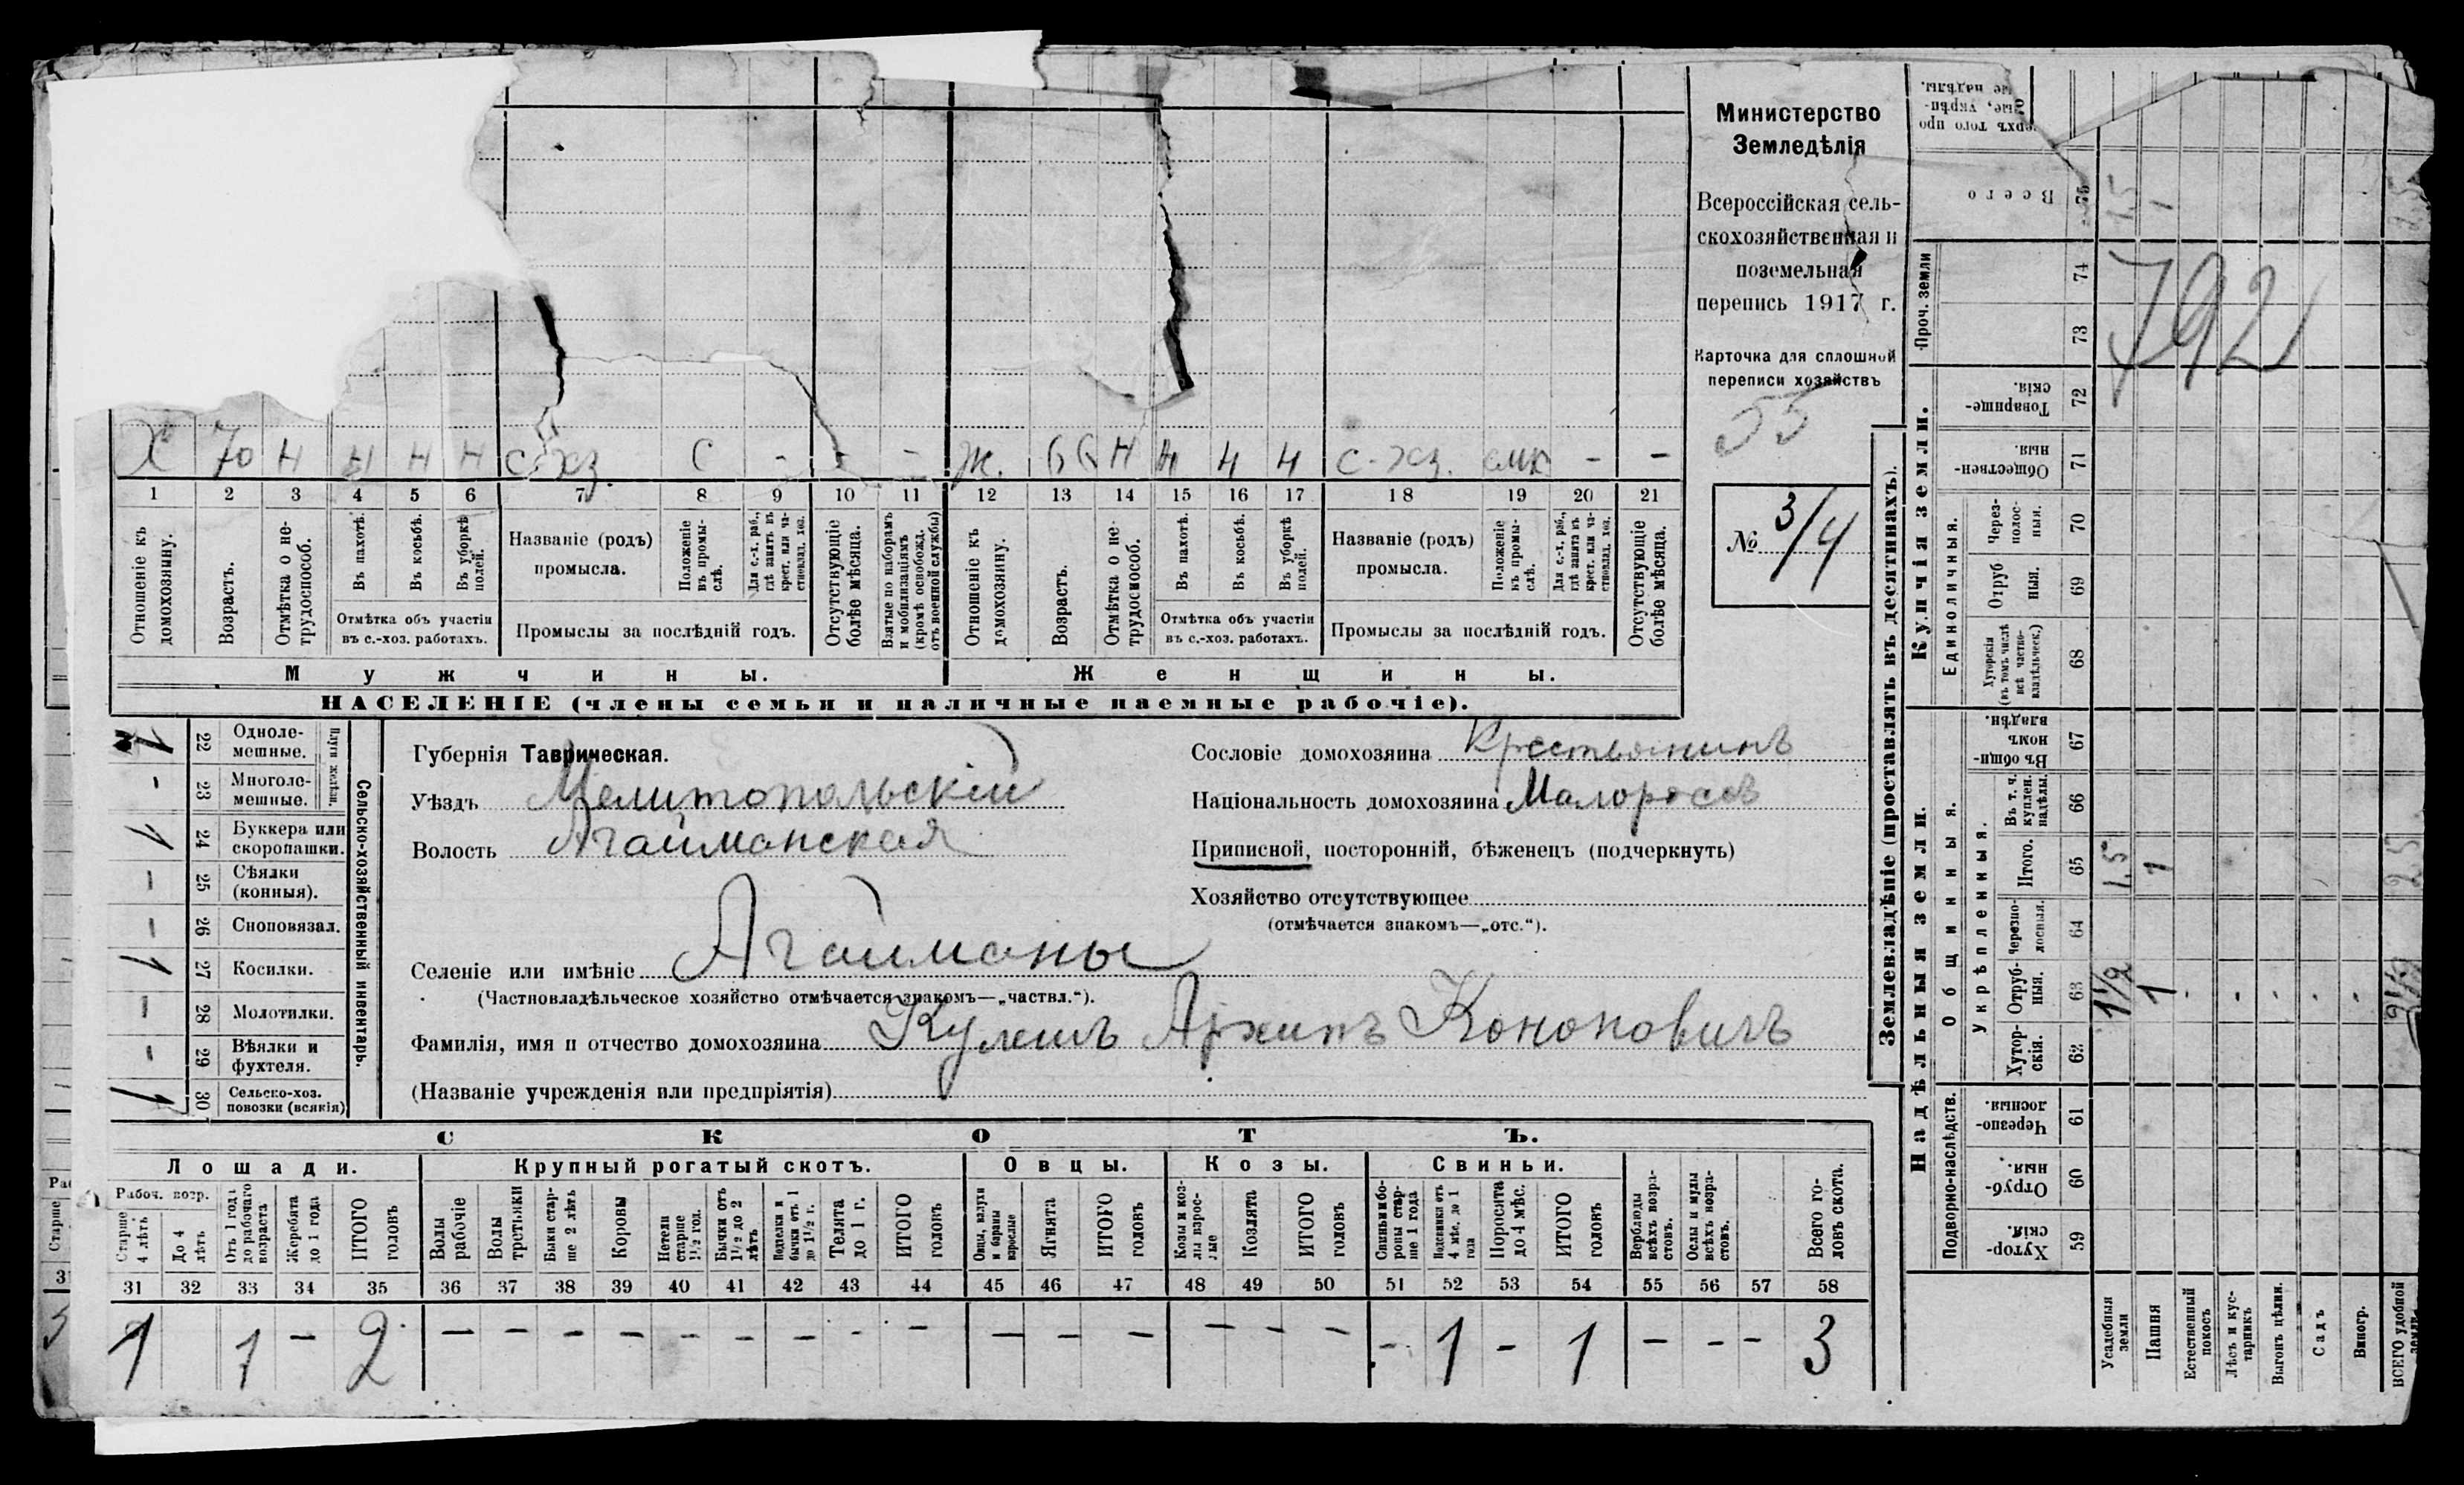 Министерство
Земледѣлія
Всероссійская сель-
скохозяйственная и
поземельная
перепись 1917 г.
Карточка для сплошной
переписи хозяйствъ
55
№ 3/4
Х 70 Н Н Н Н с-хз С - - - Ж. 66 Н Н Ч Ч с-хз. - -
1 2 3 4 5 6 7 8 9 10 11 12 13 14 15 16 17 18 19 20 21
Отношеніе къ домохозяину.
Возрастъ.
Отмѣтка о не-трудоспособ.
Въ пахотѣ.
Въ косьбѣ.
Въ уборкѣ полей.
Отмѣтка объ участіи
въ с.-хоз. работахъ.
Названіе (родъ)
промысла.
Положеніе въ промы-слѣ.
Для с.-х. раб., гдѣ занятъ въ крест. или ча-стновлад. хоз.
Промыслы за послѣдній годъ.
Отсутствующіе болѣе мѣсяца.
Взятые по наборамъ и мобилизаціямъ (кромѣ освобожд. отъ военной службы)
Отношеніе къ домохозяину.
Возрастъ.
Отмѣтка о не-трудоспособ.
Въ пахотѣ.
Въ косьбѣ.
Въ уборкѣ полей.
Отмѣтка объ участіи
въ с.-хоз. работахъ.
Названіе (родъ)
промысла.
Положеніе въ промы-слѣ.
Для с.-х. раб., гдѣ занята въ крест. или ча-стновлад. хоз.
Промыслы за послѣдній годъ.
Отсутствующіе болѣе мѣсяца.
Мужчины. Женщины.
НАСЕЛЕНІЕ (члены семьи и наличные наемные рабочіе).
1 22 Одноле-мешные.
- 23 Многоле-мешные.
Плуги желѣзн.
1 24 Буккера или скоропашки.
- 25 Сѣялки (конныя).
- 26 Сноповязал.
1 27 Косилки.
- 28 Молотилки.
- 29 Вѣялки и фухтеля.
1 30 Сельско-хоз. повозки (всякія)
Сельско-хозяйственный инвентарь.
Губернія Таврическая.
Уѣздъ Мелитопольскій
Волость Агайманская
Сословіе домохозяина Крестьянинъ
Національность домохозяина Малороссъ
Приписной, посторонній, бѣженецъ (подчеркнуть)
Хозяйство отсутствующее
(отмѣчается знакомъ—„отс.“).
Селеніе или имѣніе Агайманы
(Частновладѣльческое хозяйство отмѣчается знакомъ—„частвл.“).
Фамилія, имя и отчество домохозяина Кулешъ Архипъ Кононовичъ
(Названіе учрежденія или предпріятія)
СКОТЪ.
Лошади. Крупный рогатый скотъ. Овцы. Козы. Свиньи.
Рабоч. возр.
Старше 4 лѣтъ
До 4 лѣтъ
Отъ 1 года до рабочаго возраста
Жеребята до 1 года
ИТОГО головъ
Волы рабочіе
Волы третьяки
Быки стар-ше 2 лѣтъ
Коровы
Нетели старше 1½ год.
Бычки отъ 1½ до 2 лѣтъ
Подтелки и бычки отъ 1 до 1½ г.
Телята до 1 г.
ИТОГО головъ
Овцы, валухи и бараны взрослые
Ягнята
ИТОГО головъ
Козы и коз-лы взрос-лые
Козлята
ИТОГО головъ
Свиньи и бо-ровы стар-ше 1 года
Подсвинки отъ 4 мѣс. до 1 года
Поросята до 4 мѣс.
ИТОГО головъ
Верблюды всѣхъ возра-стовъ.
Ослы и мулы всѣхъ возра-стовъ.
Всего го-ловъ скота.
31 32 33 34 35 36 37 38 39 40 41 42 43 44 45 46 47 48 49 50 51 52 53 54 55 56 57 58
1 1 - 2 - - - - - - - - - - - - - - - - 1 - 1 - - - 3
Землевладѣніе (проставлять въ десятинахъ).
Надѣльныя земли.
Купчія земли.
Проч. земли
Подворно-наслѣдств.
Общинныя.
Укрѣпленныя.
Единоличныя.
Хутор-скія. 59
Отруб-ныя. 60
Черезпо-лосныя. 61
Хутор-скія. 62
Отруб-ныя. 63
Черезпо-лосныя. 64
Итого. 65
Въ т. ч. куплен. надѣлы. 66
Въ общин-номъ владѣн. 67
Хуторскія (въ томъ числѣ всѣ частно-владѣльческ.) 68
Отруб-ныя. 69
Через-полос-ныя. 70
Обществен-ныя. 71
Товарище-скія. 72
73
74
Всего 75
Усадебныя земли
Пашня
Естественный покосъ
Лѣсъ и кус-тарникъ
Выгонъ цѣлин.
Садъ
Виногр.
ВСЕГО удобной земли
1½ 1 - - - - - 2½
1,5 1 2,5
1,5 1 2,5
792